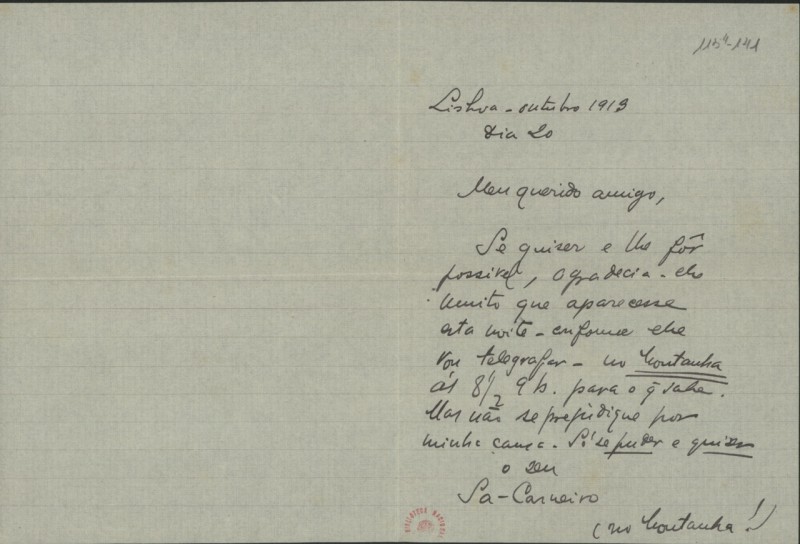 115⁴-141
Lisboa - outubro 1913
Dia 20
Meu querido amigo,
Se quiser e lhe fôr
possivel, agradecia-lhe
muito que aparecesse
esta noite - conforme lhe
vou telegrafar - no Montanha
ás 8 1/2 9 h. para o q̃ sabe.
Mas não se prejudique por
minha causa. Só se puder e quiser
o seu
Sá-Carneiro
(no Montanha!)
BIBLIOTECA NACIONAL